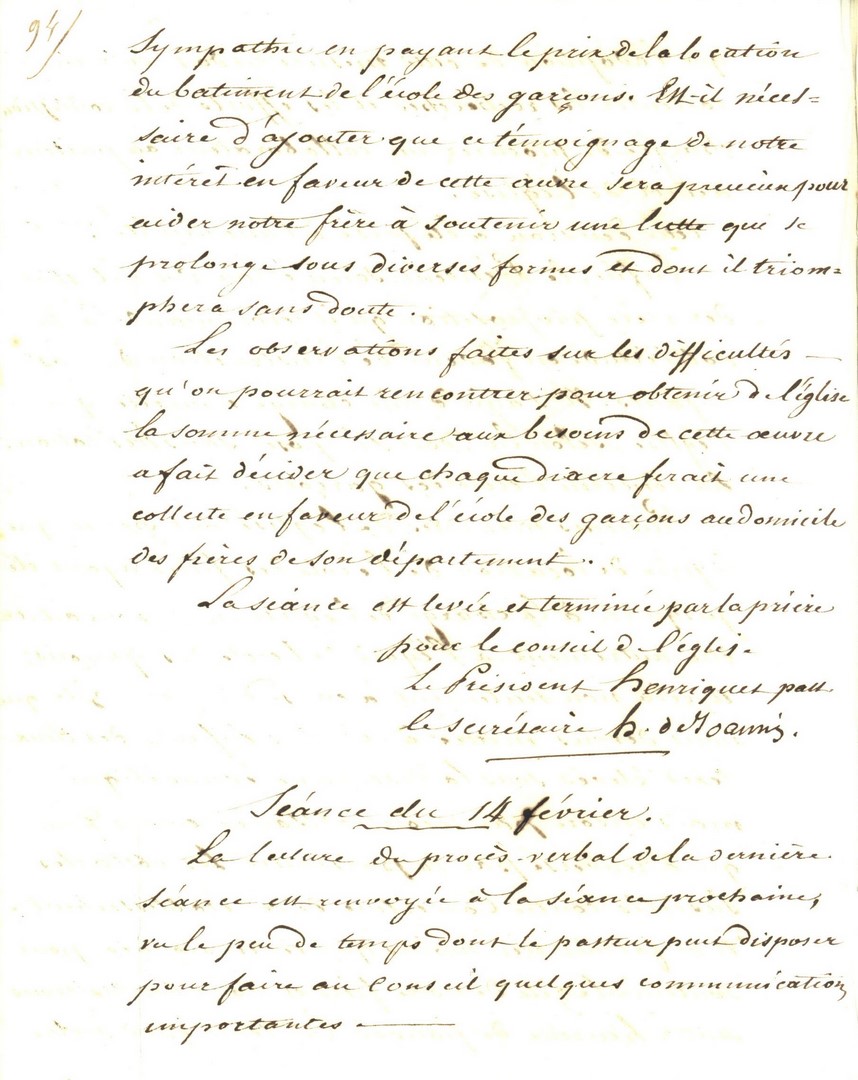 94/.
Sympathie en payant le prix de la location
du batiment de l'école des garçons. Est-il néces=
saire d'ajouter que ce témoignage de notre
intérêt en faveur de cette œuvre sera precieux pour
aider notre frère à soutenir une lutte que se
prolonge sous diverses formes et dont il triom=
phera sans doute.
Les observations faites sur les difficultés —
qu'on pourrait rencontrer pour obtenir de l'église
la somme nécessaire aux besoins de cette œuvre
a fait décider que chaque diacre ferait une
collecte en faveur de l'école des garçons au domicile
des frères de son département.
La séance est levée et terminée par la prière
pour le conseil de l'église
Le Président Henriquet past.
le secrétaire h. de Joannis.
Séance du 14 février.
La lecture du procès-verbal de la dernière
séance est renvoyée à la séance prochaine,
vu le peu de temps dont le pasteur peut disposer
pour faire au Conseil quelques communications
importantes —